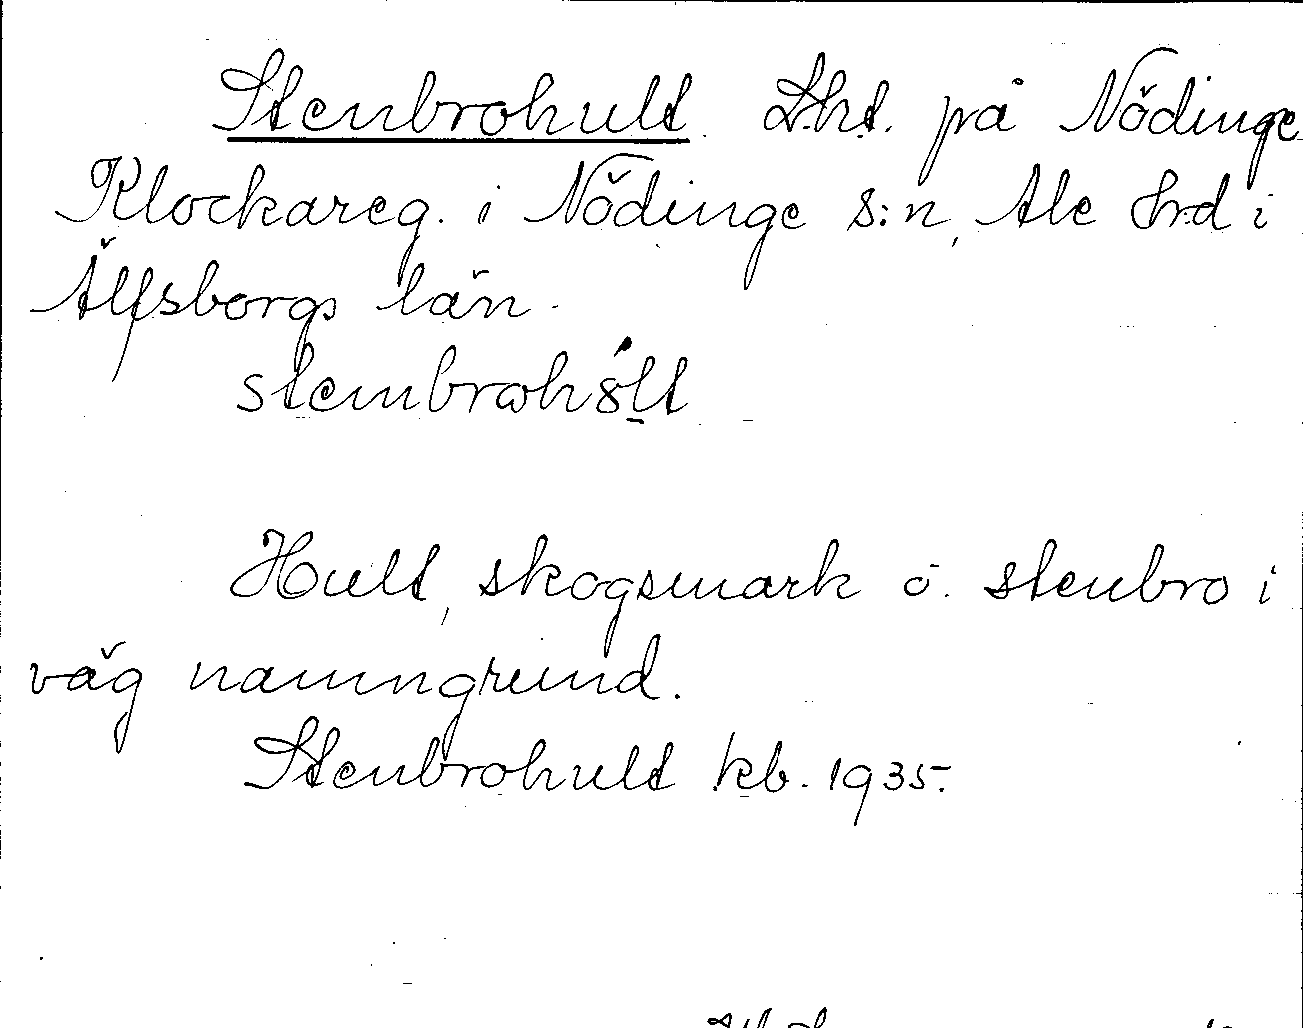 Stenbrohult. Lht. på Nödinge
Klockareg. i Nödinge s:n, Ale hrd i
Älfsborgs län.
Hult, skogsmark o. stenbro i
väg namngrund.
Stenbrohult kb. 1935.